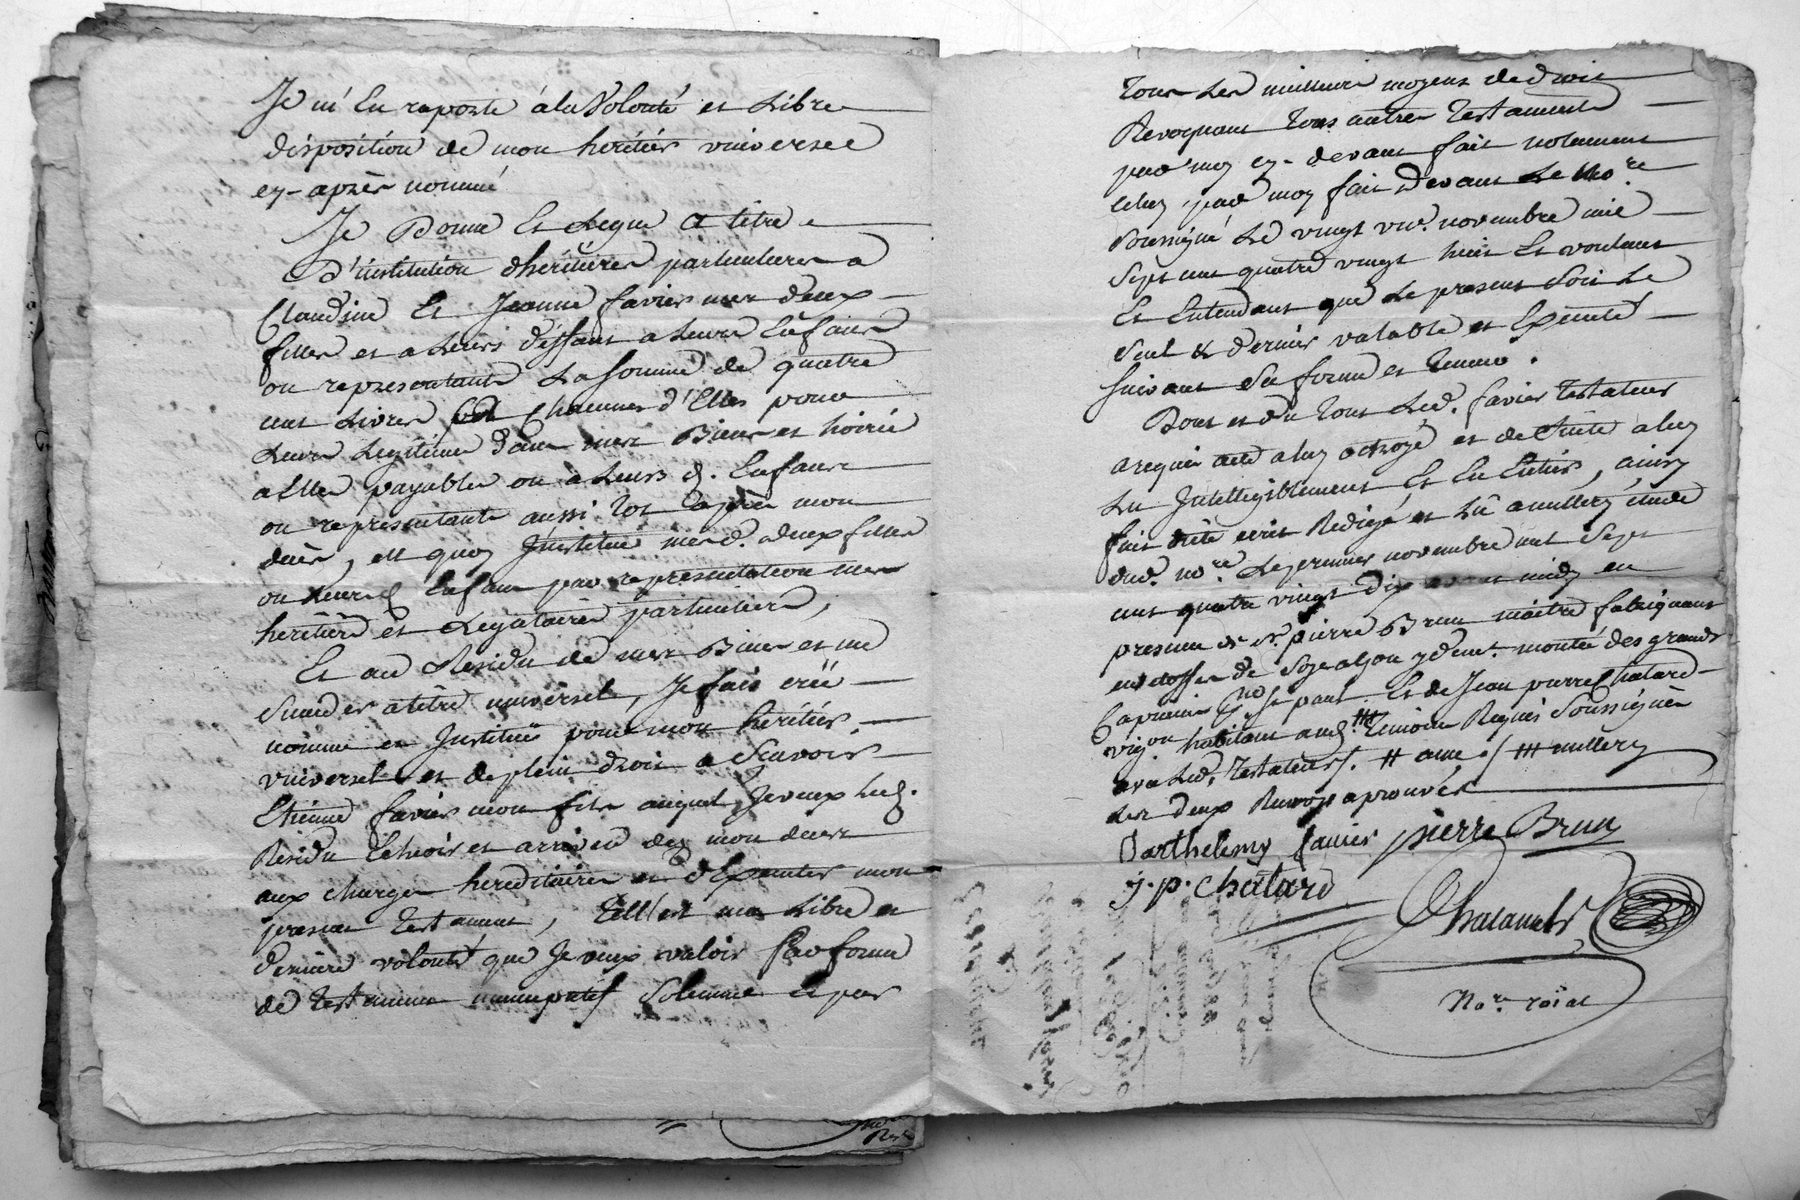 Je m'En raporte à la Volonté et Libre
disposition de mon heritier universel
cy-après nommé
Je Donne Et Legue a titre
d'institution d'heritieres particulieres a
Claudine Et Jeanne favier mes deux
filles et a Leurs deffaut a Leurs Enfants
ou representants La somme de quatre
cent Livres Chacunes d'Elles pour
Leurs Legitime dans mes Biens et hoirie
a Elles payables ou à Leurs d. Enfants
ou representants aussi tot après mon
deces, et quoy Jnstitue mesd. deux filles
ou Leursd Enfans par representation mes
heritiere et Legataires particulieres,
Et au Residu de mes Biens et me
succeder a titre universel, Je fais créé
nomme et Jnstitue pour mon heritier
vniversel et de plein droit a Scavoir
Etienne favier mon fils auquel Je veux Led.
Residu Echeoir et arriver dez mon deces
aux charges hereditaires et d'Executer mon
present testament, Telle est ma Libre et
derniere volonté que Je veux valoir par forme
de testament nuncupatif Solemnel et par
tous Les meilleurs moyens de droit
Revoquant tous autres testaments
par moy cy-devant fait notamment
celuy par moy fait devant Le No.re
soussigné Le vingt vn. novembre mil
sept cent quatre vingt huit Et voulant
Et Entendant que Le present soit Le
seul & dernier valable et Executé
suivant sa forme et teneur.
Dont et du tout Led. favier testateur
a requis acte a luy octroyé et de suitte a luy
Lu Jntelligiblement Et En Entier, ainsy
fait dicté ecrit Redigé et Lû a millery étude
dud. no.re Le premier novembre mil Sept
cent quatre vingt dix avant midy en
presence de sr. pierre Brun maitre fabriquant
en etoffes de Soye a Lyon y demt. montée des grands
Capucins St paul Et de Jean pierre Chatard
vigon habitant aud. ## temoins Requis Soussignés
avec Led. testateur. # ## millery
Les deux Renvois aprouvés
Barthelemy favier pierre Brun
j. p. Chatard
No.re roïal